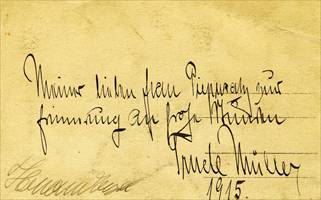 Meiner lieben Frau Piepusaty zur
Erinnerung an frohe Stunden
Trude Müller
1915.